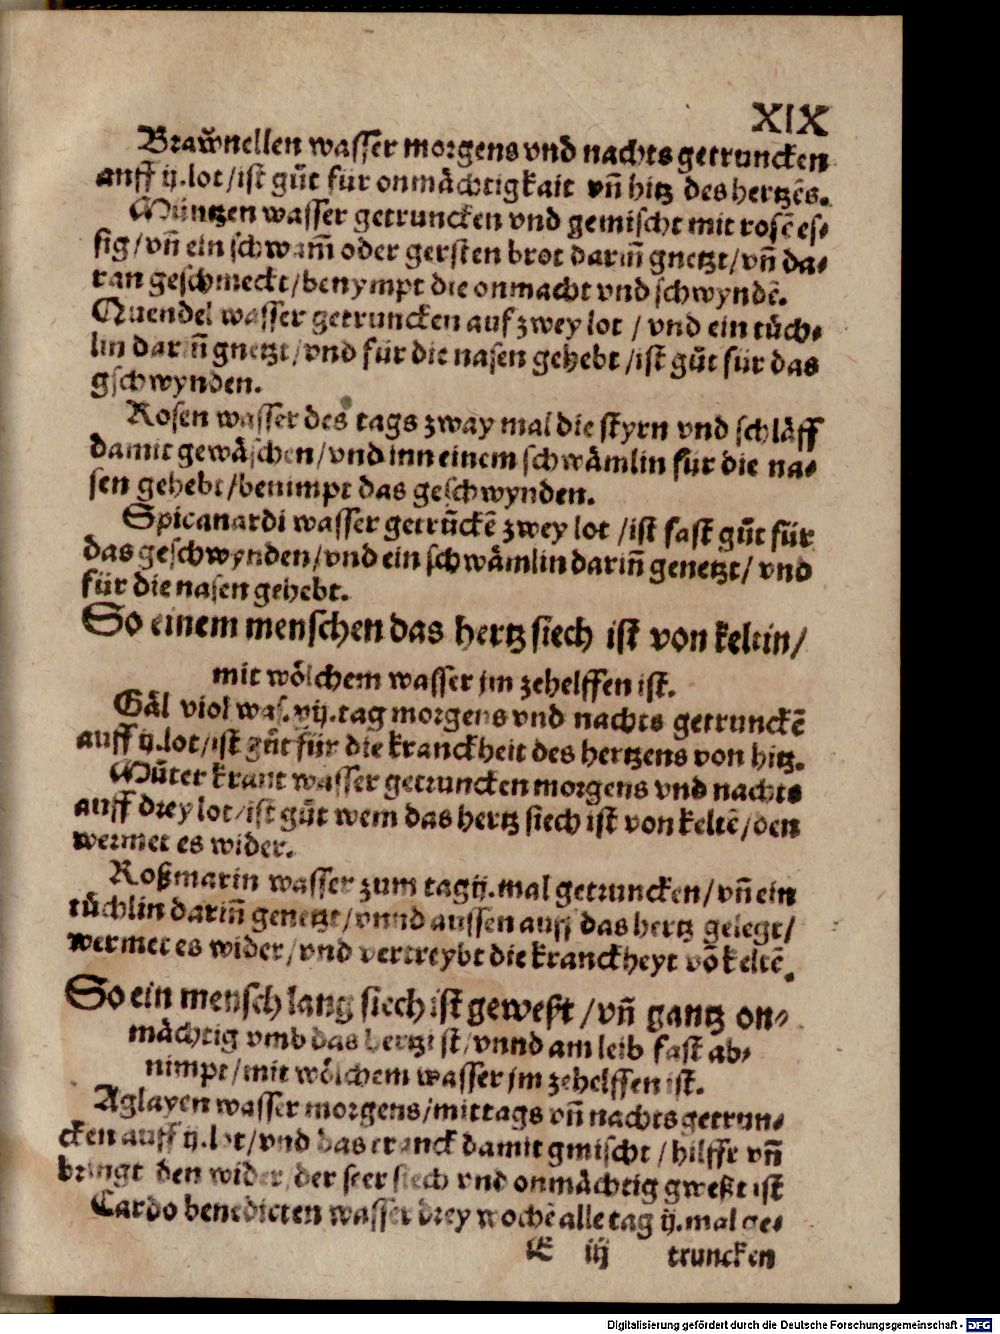 XIX
Brawͤnellen wasser morgens vnd nachts getruncken
auff ij.lot/ist guͤt fuͤr onmaͤchtigkait vñ hitz des hertzēs.
Muͤntzen wasser getruncken vnd gemischt mit rosē es⸗
sig/vñ ein schwam̄ oder gersten brot darin̄ gnetzt/vñ da⸗
ran geschmeckt/benympt die onmacht vnd schwyndē.
Quendel wasser getruncken auf zwey lot / vnd ein tuͤch⸗
lin darin̄ gnetzt/vnd fuͤr die nasen gehebt/ist guͤt fuͤr das
gschwynden.
Rosen wasser des tags zway mal die styrn vnd schlaͤff
damit gewaͤschen/vnd inn einem schwaͤmlin fuͤr die na⸗
sen gehebt/benimpt das geschwynden.
Spicanardi wasser getrūckē zwey lot /ist fast guͤt fuͤr
das geschwynden/vnd ein schwaͤmlin darin̄ genetzt/ vnd
fuͤr die nasen gehebt.
So einem menschen das hertz siech ist von keltin/
mit woͤlchem wasser jm zehelffen ist.
Gaͤl viol was.vij.tag morgens vnd nachts getrunckē
auff ij.lot/ist guͤt fuͤr die kranckheit des hertzens von hitz.
Muͤter kraut wasser getruncken morgens vnd nachts
auff drey lot/ist guͤt wem das hertz siech ist von keltē/den
wermet es wider.
Roßmarin wasser zum tag ij.mal getruncken/vñ ein
tuͤchlin darin̄ genetzt/vnnd aussen auff das hertz gelegt/
wermet es wider/vnd vertreybt die kranckheyt vō keltē.
So ein mensch lang siech ist geweßt /vñ gantz on⸗
maͤchtig vmb das hertz ist/vnnd am leib fast ab⸗
nimpt/mit woͤlchem wasser jm zehelffen ist.
Aglayen wasser morgens/mittags vñ nachts getrun⸗
cken auff ij.lot/vnd das tranck damit gmischt /hilfft vñ
bringt den wider/der seer siech vnd onmaͤchtig gweßt ist
Cardo benedicten wasser drey wochē alle tag ij.mal ge⸗
E iij truncken
Digitalisierung gefördert durch die Deutsche Forschungsgemeinschaft - DFG